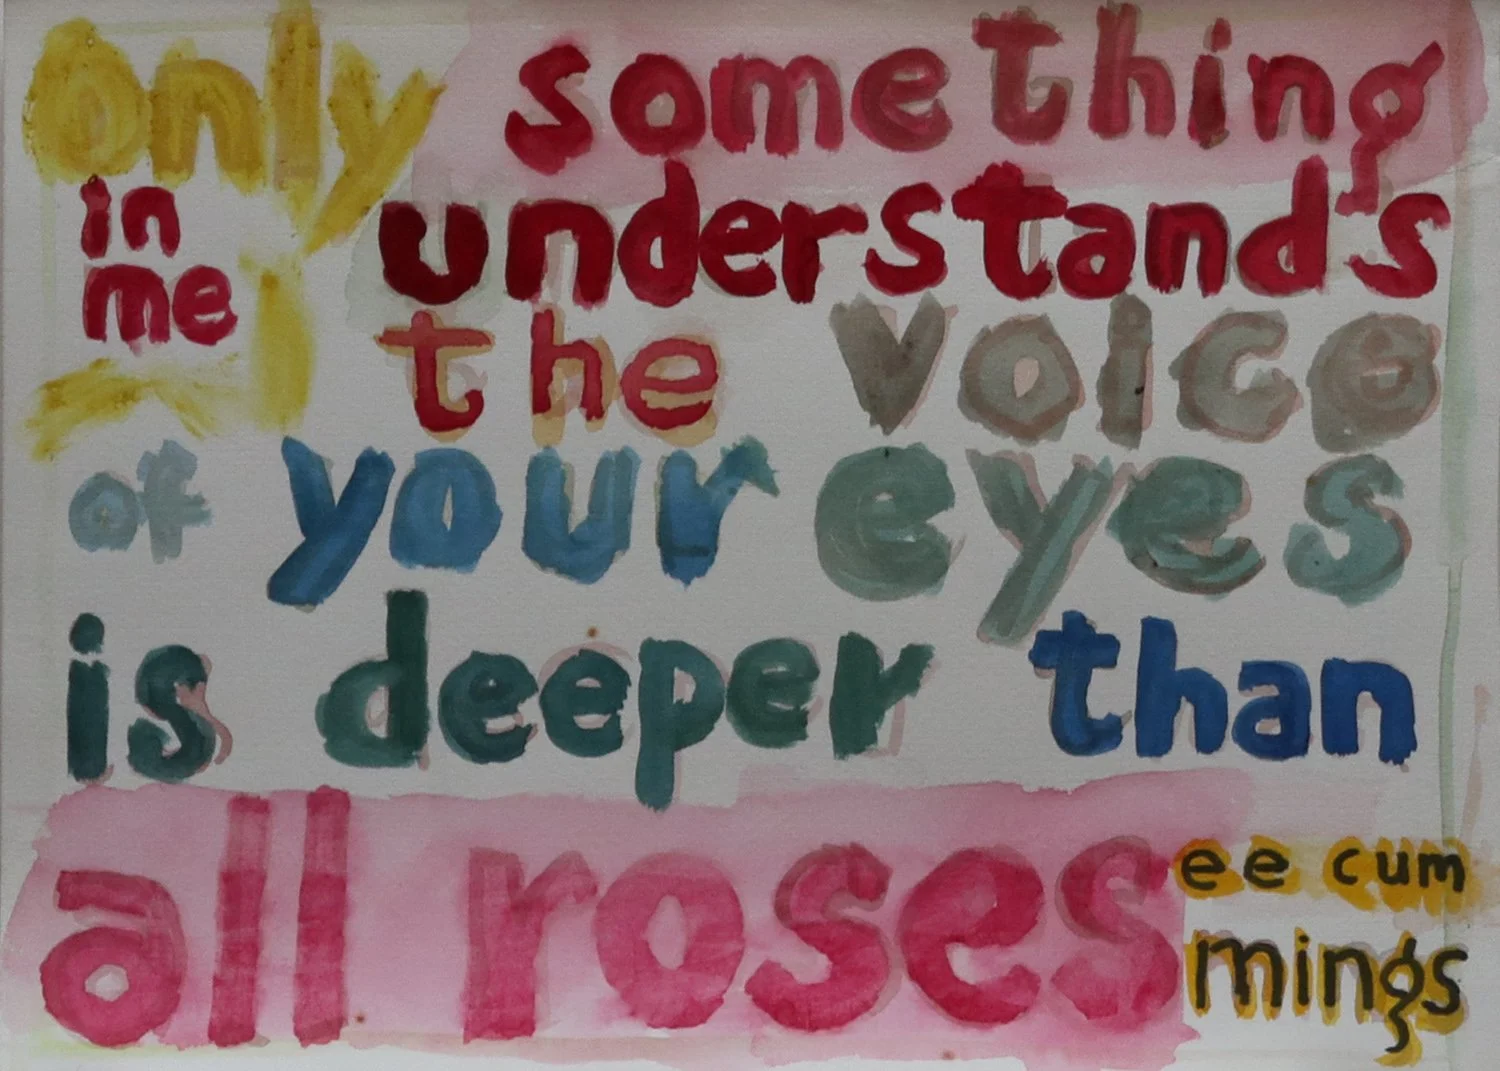 only something
in me understands
the voice
of your eyes
is deeper than
all roses
ee cum
mings